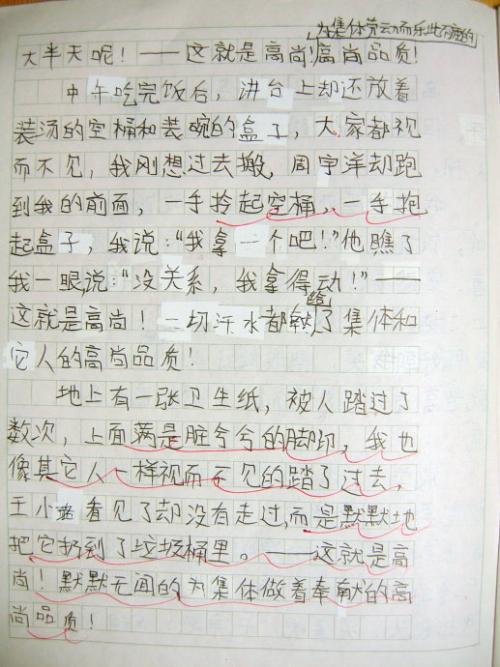 为集体劳动而乐此不疲的
大半天呢！——这就是高尚！高尚品质！
中午吃完饭后，讲台上却还放着
装汤的空桶和装碗的盒子，大家都视
而不见，我刚想过去搬，周宇洋却跑
到我的前面，一手拎起空桶，一手抱
起盒子，我说：“我拿一个吧！”他瞧了
我一眼，说：“没关系，我拿得动！”——
这就是高尚！一切汗水都给了集体和
它人的高尚品质！
地上有一张卫生纸，被人踏过了
数次，上面满是脏兮兮的脚印，我也
像其它人一样视而不见的踏了过去，
王小璐看见了却没有走过，而是默默地
把它扔到了垃圾桶里。——这就是高
尚！默默无闻的为集体做着奉献的高
尚品质！